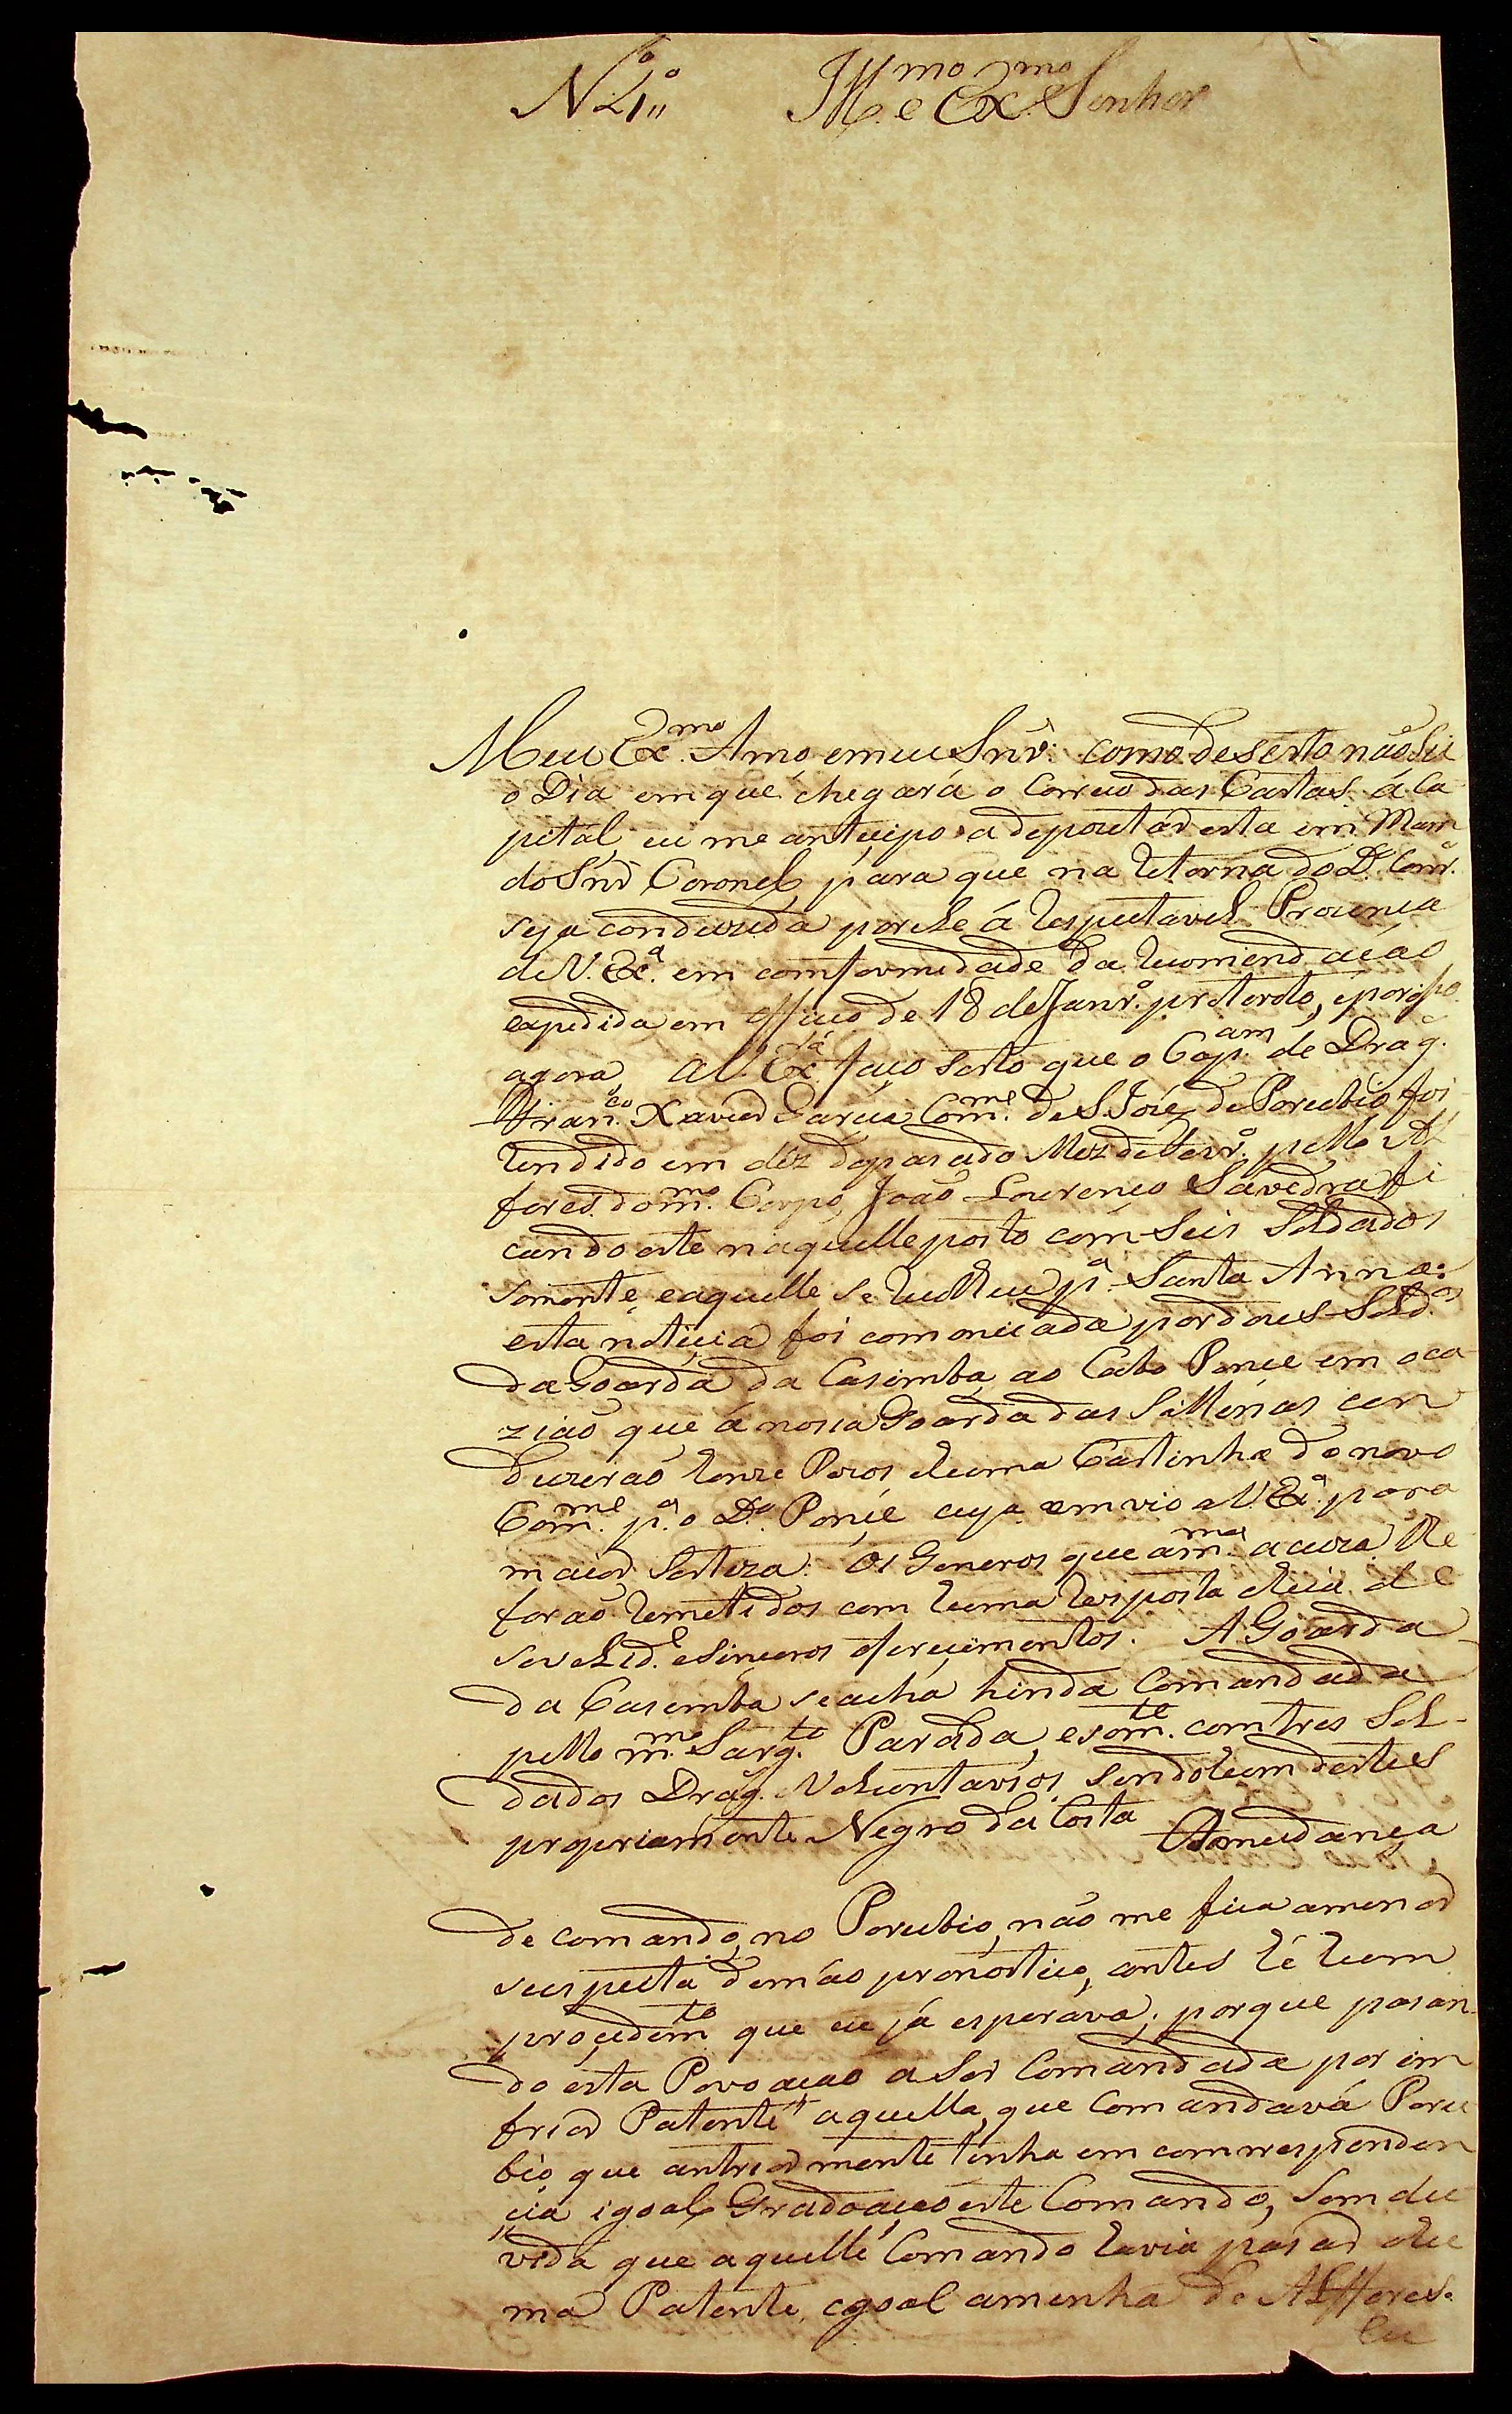 N.º 1º,, Ill.mo e Ex.mo Senhor
Meu Ex.mo Amo, e meu Snr̃: como de serto não sei
o Dia em que chegará o Correio das Cartas á Ca
pital, eu me antecipo a depozitar esta em Mam
do Snr̃ Coronel, para que na retorna do D.º Corr.º
seja conduzida por ele á respectavel Prezença
de V. Ex.ª em comformidade da recomendação
expedida em officio de 18 de Janr.º preterito, e por isso
agora, A V. Ex.ª faço serto que o Cap.am de Drag.
Fran.co Xavier Garcia Com.me de S. Joze, de Porubio foi
rendido em déz do pasado Mez de Fevr.º pello Al
feres do m.mo Corpo, João Lourenço Savedra fi
cando este naquelle posto com seis Soldados
somente, e aquelle se recolheu p.ª Santa Anna:
esta noticia foi comonicada por dous Sold.os
da Goarda da Casimba, ao Cabo Ponce em oca
zião que á nossa Goarda das Sallinas con
duzirão honze Pezos e huma Cartinha do novo
Com.me p.ª o D.º Ponce cuja emvio a V. Ex.ª para
maior serteza: Os Generos que a m.ma acuza lhe
forão remetidos com huma resposta cheia de
sevelid.e e sinceros oferecimentos. A Goarda
da Casemba se acha hinda Comandada
pello m.mo Sarg.to Parada, e som.te com tres Sol-
dados Drag. Voluntarios, sendo hum destes
propriamente Negro da Costa A mudança
de comando, no Porubio, não me fica a menor
suspeita de máo pronostico, antes hé hum
procedim.to que eu já esperava; porque pasan-
do esta Povoação a ser Comandada por im
frior Patente aquella, que Comandava Poru
bio que antriormente tinha em comrresponden
cia igoal Gradoação este Comando, sem du
vida que aquelle Comando havia pasar a hu
ma Patente, egoal a minha de Alfferes.
Eu